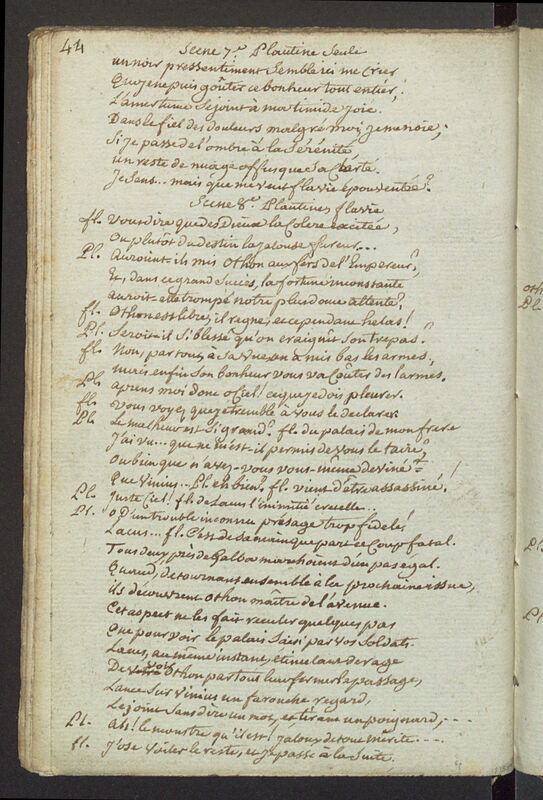 44
Scene 7e Plautine Seule
un noir pressentiment Semble ici me Crier
Que je ne puis goûter ce bonheur tout entier;
L'amertume Se joint à ma timide joie.
Dans le fiel des douleurs malgré moi je me noie;
Si je passe de l'ombre à la Sérénité
un reste de nuage offusque Sa Clarté.
Je Sens... mais que me veut flavie épouventée?
Scene 8e. Plautine, flavie
fl. Vous dire que des Dieux la Colere excitée,
Ou plutot du destin la jalouse fureur...
Pl. Auroient-ils mis Othon aux fers de l'Empereur?
Et, dans ce grand Succès, la fortune inconstante
auroit-elle trompé notre plus douce attente?
fl. Othon est libre; il regne; et cependant helas!
Pl. Seroit-il Si blessé qu'on craignît Son trepas?
fl. Non, partout à Sa vue on a mis bas les armes,
mais enfin Son bonheur vous va Coûter des larmes.
Pl. aprens moi donc o Ciel! ce que je dois pleurer.
fl. Vous voyez que je tremble à vous le declarer.
Pl. Le malheur est Si grand? fl. du palais de mon frere
J'ai vu... que ne m'est-il permis de vous le taire?
Ou bien que n'avez-vous vous-même deviné
Que Vinius... Pl. eh bien? fl. vient d'être assassiné!
Pl. Juste Ciel! fl. de Lacus l'inimitié cruelle...
Pl. O d'un trouble inconnu présage trop fidele!
Lacus... fl. C'est de sa main que part ce Coup fatal.
Tous deux, près de Galba marchoient d'un pas egal.
Quand, detournant ensemble à la prochaine issue,
ils découvrent Othon maître de l'avenue.
Cet aspect ne les fait reculer quelques pas
Que pour voir le palais Saisi par vos Soldats.
Lacus, au même instant, etincelant de rage
De voir Othon partout leur fermer le passage,
Lance Sur Vinius un farouche regard,
Le joint Sans dire un mot, et tirant un poignard,...
Pl. Ah! le monstre qu'il est! jaloux de tout mérite...
fl. J'ose voiler le reste, et je passe à la Suite.
oth
Pl
Pl.
Pl.